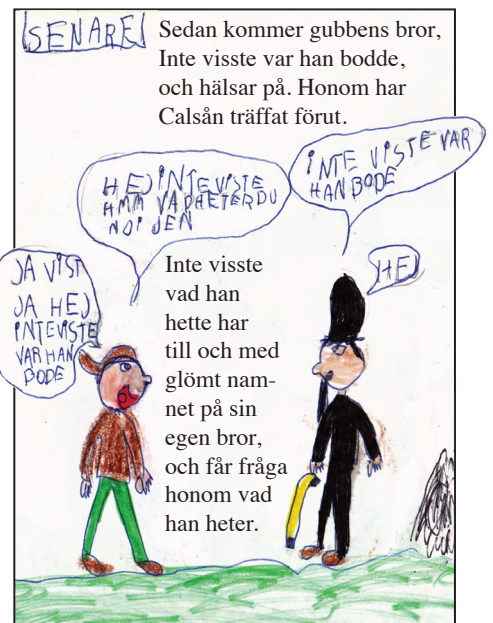 SENARE
Sedan kommer gubbens bror,
Inte visste var han bodde,
och hälsar på. Honom har
Calsån träffat förut.
INTE VISTE VAR
HAN BODE
HEJ INTE VISTE
HMM VAD HETER DU
NU IJEN
HEJ
JA VIST
JA HEJ
INTE VISTE
VAR HAN
BODE
Inte visste
vad han
hette har
till och med
glömt nam-
net på sin
egen bror,
och får fråga
honom vad
han heter.